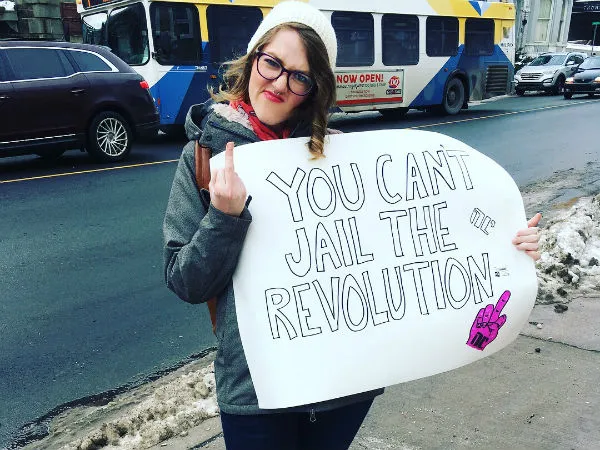 NOW OPEN!
YOU CAN'T
JAIL THE
REVOLUTION